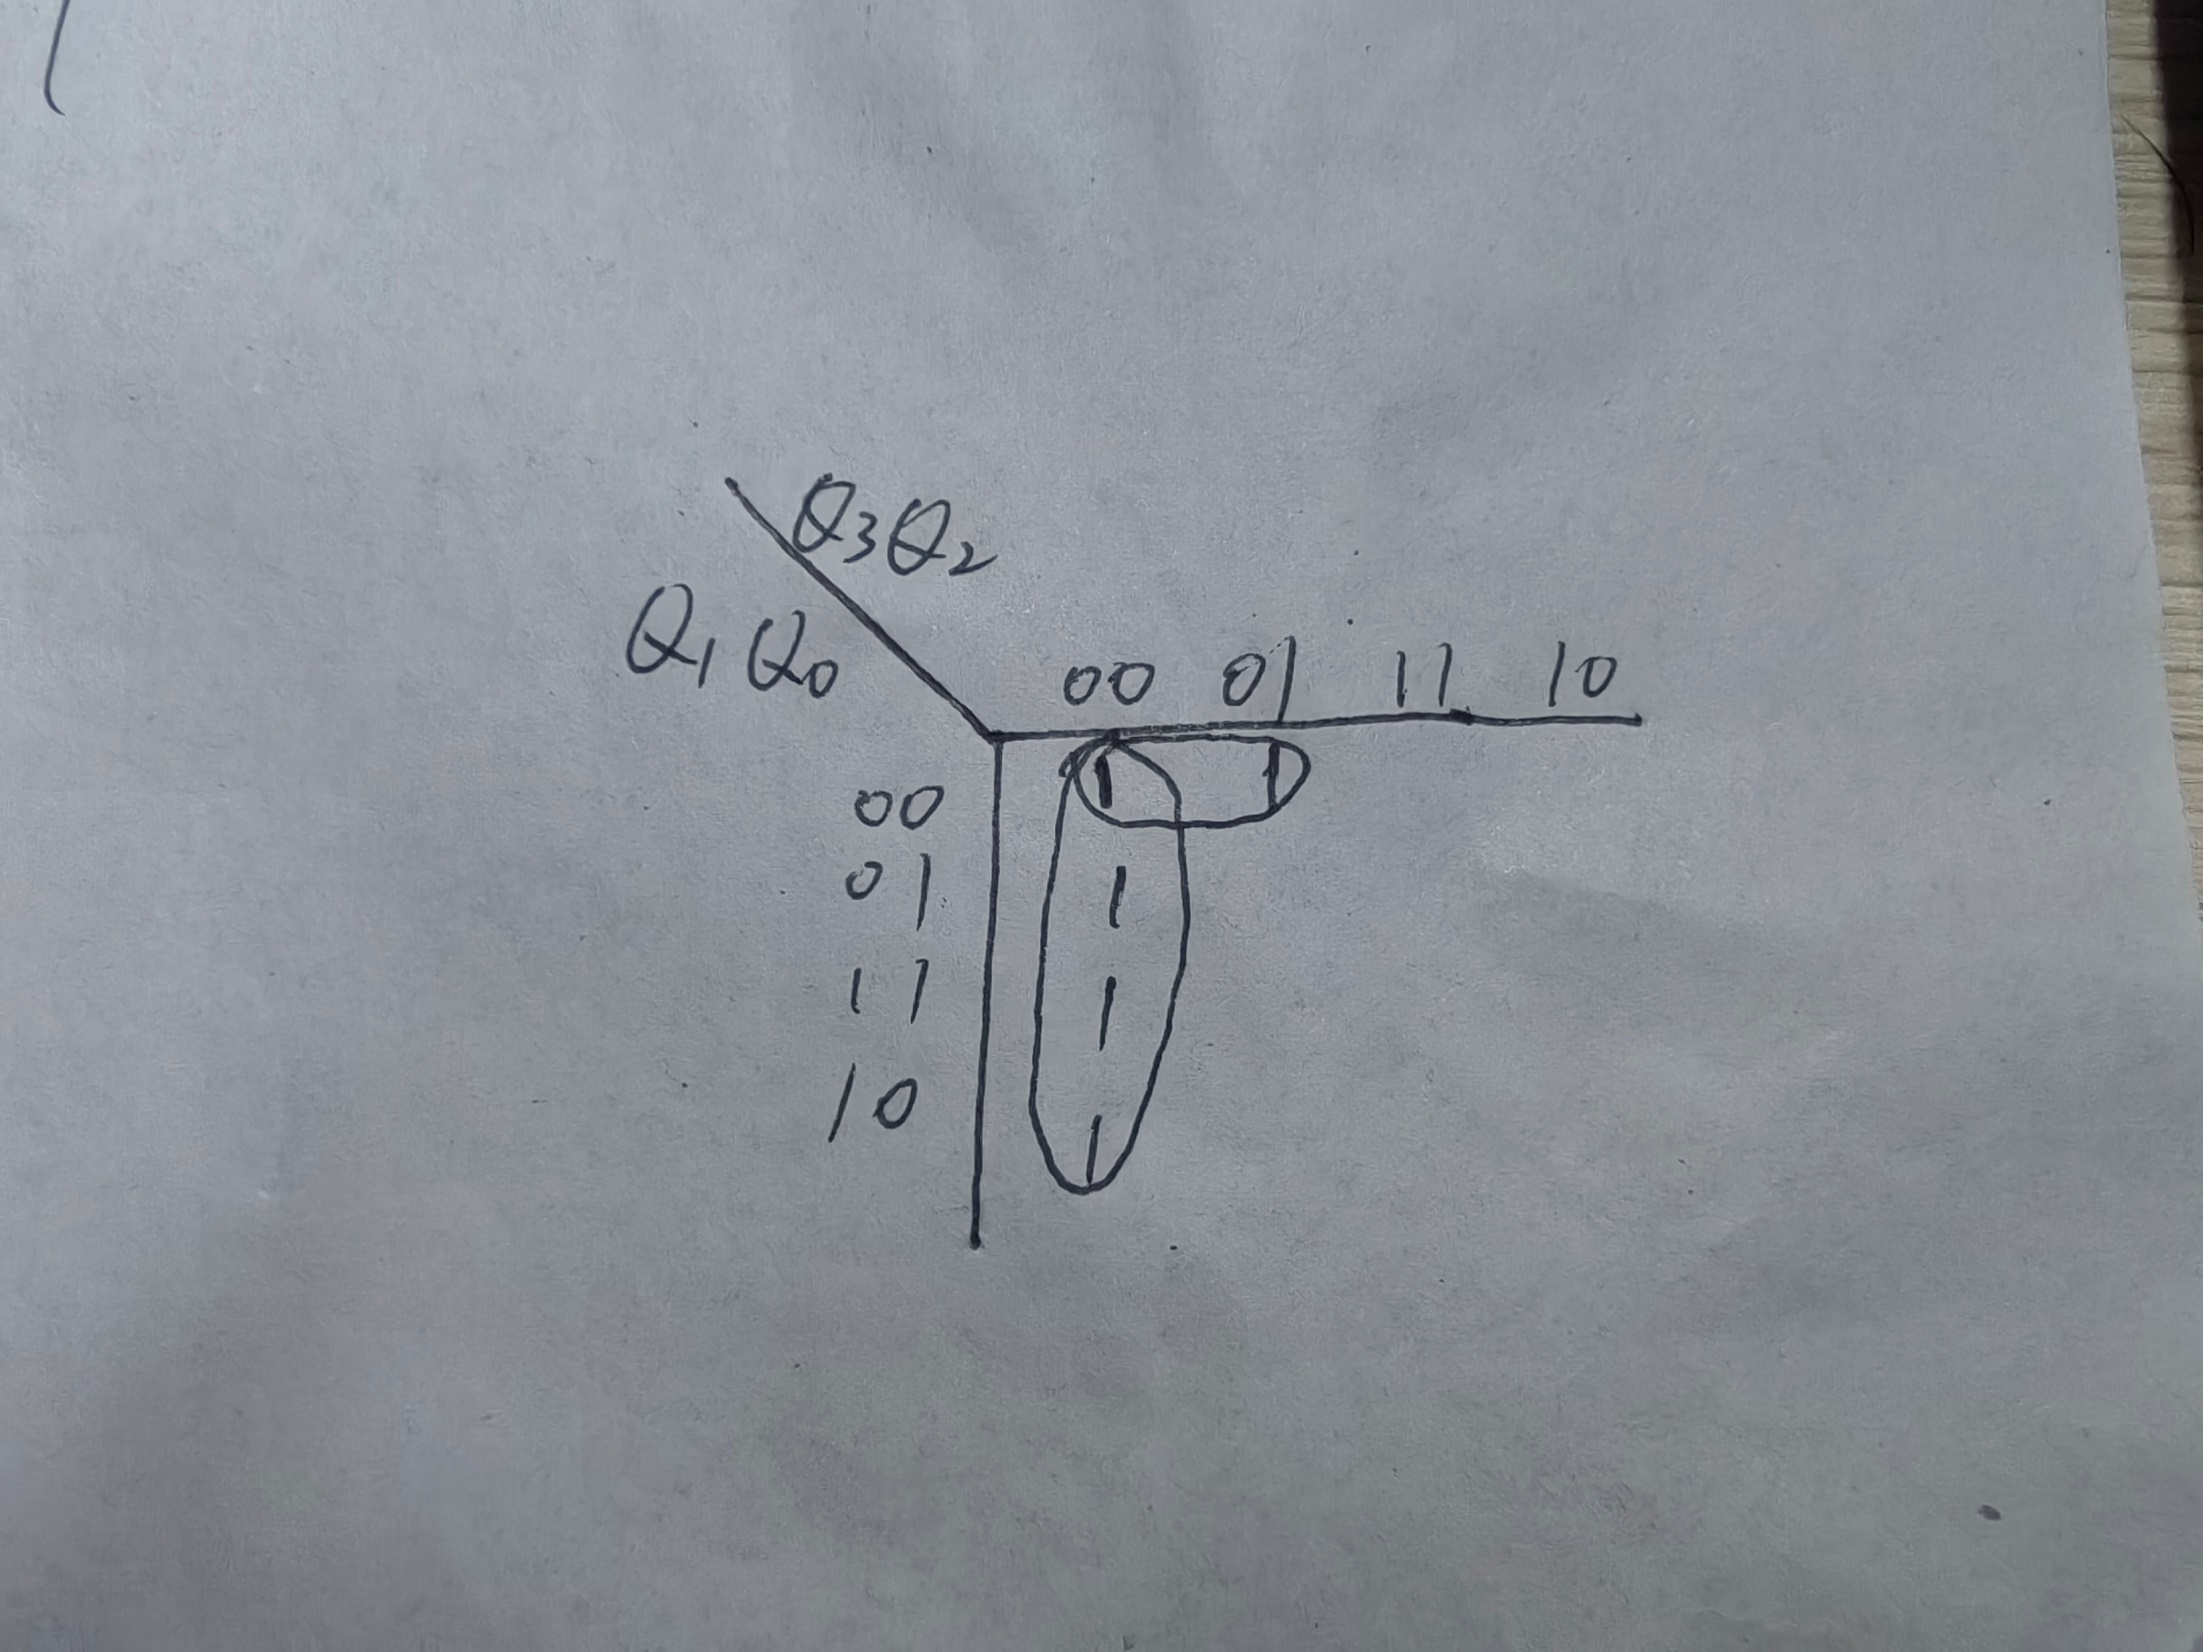 Q3Q2
Q1Q0
00 01 11 10
00 1 1
01 1
11 1
10 1